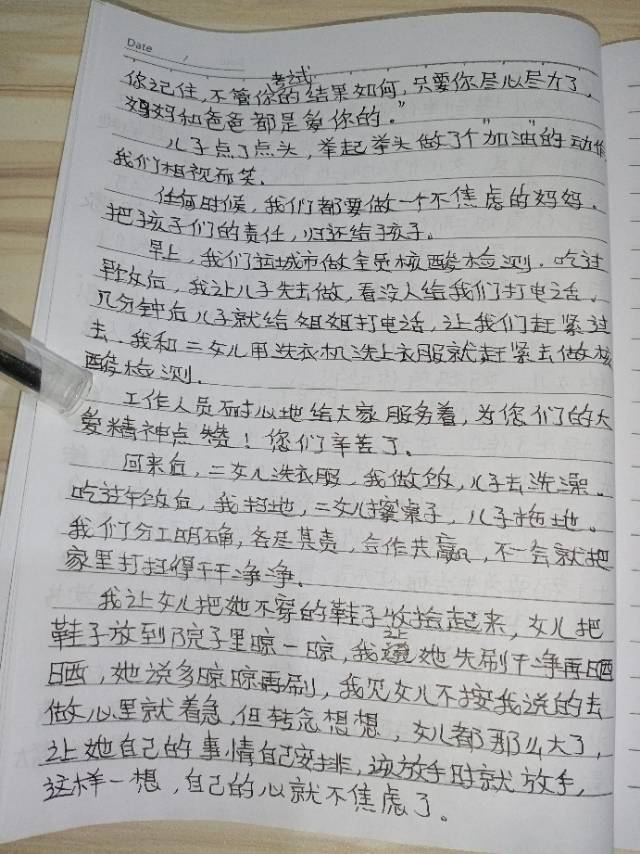 Date
考试
你记住,不管你的结果如何,只要你尽心尽力了,
妈妈和爸爸都是爱你的。”
儿子点了点头,举起拳头做了个“加油”的动作
我们相视而笑。
任何时候,我们都要做一个不焦虑的妈妈。
把孩子们的责任,归还给孩子。
早上,我们运城市做全员核酸检测。吃过
早饭后,我让儿子先去做,看没人给我们打电话。
几分钟后儿子就给姐姐打电话,让我们赶紧过
去。我和二女儿用洗衣机洗上衣服就赶紧去做核
酸检测。
工作人员耐心地给大家服务着,为您们的大
爱精神点赞!您们辛苦了。
回来后,二女儿洗衣服,我做饭,儿子去洗澡。
吃过午饭后,我扫地,二女儿擦桌子,儿子拖地。
我们分工明确,各尽其责,合作共赢,不一会就把
家里打扫得干干净净。
我让女儿把她不穿的鞋子收拾起来,女儿把
鞋子放到院子里晾一晾,我让她先刷干净再晒
晒,她说多晾晾再刷,我见女儿不按我说的去
做心里就着急,但转念想想,女儿都那么大了,
让她自己的事情自己安排,该放手时就放手,
这样一想,自己的心就不焦虑了。